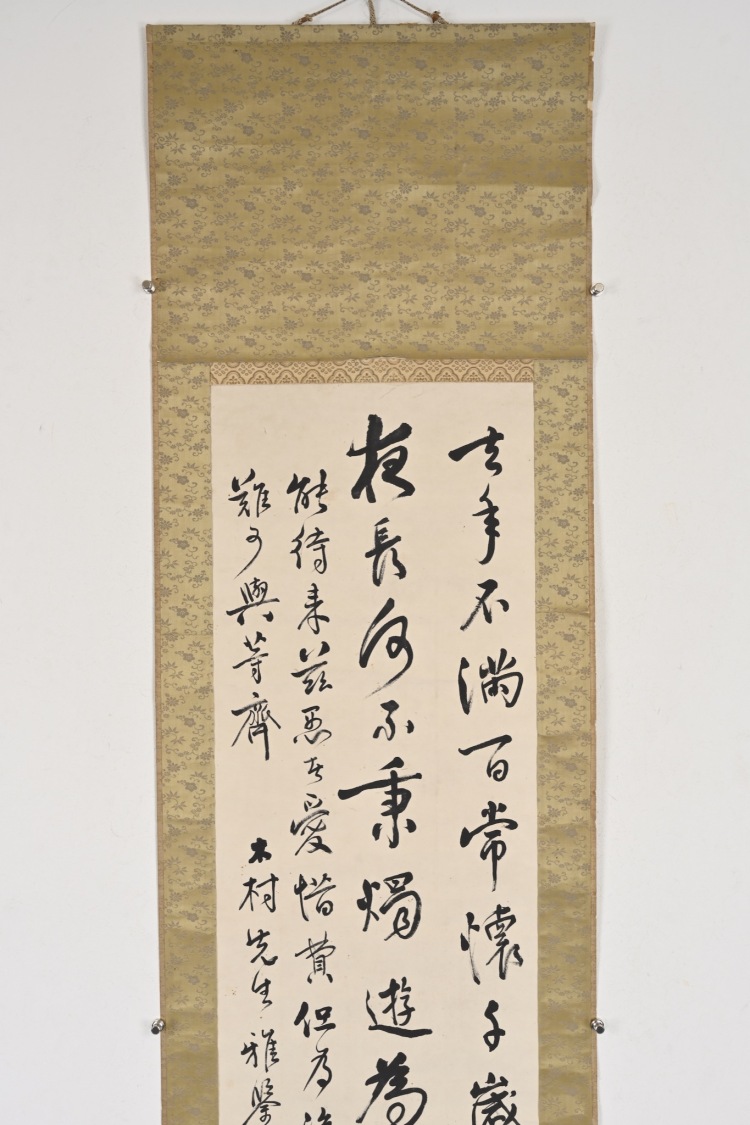 生年不滿百常懷千歲
夜長何不秉燭遊為
能待来茲愚者愛惜費但為
難可與等齊
木村先生雅鑒